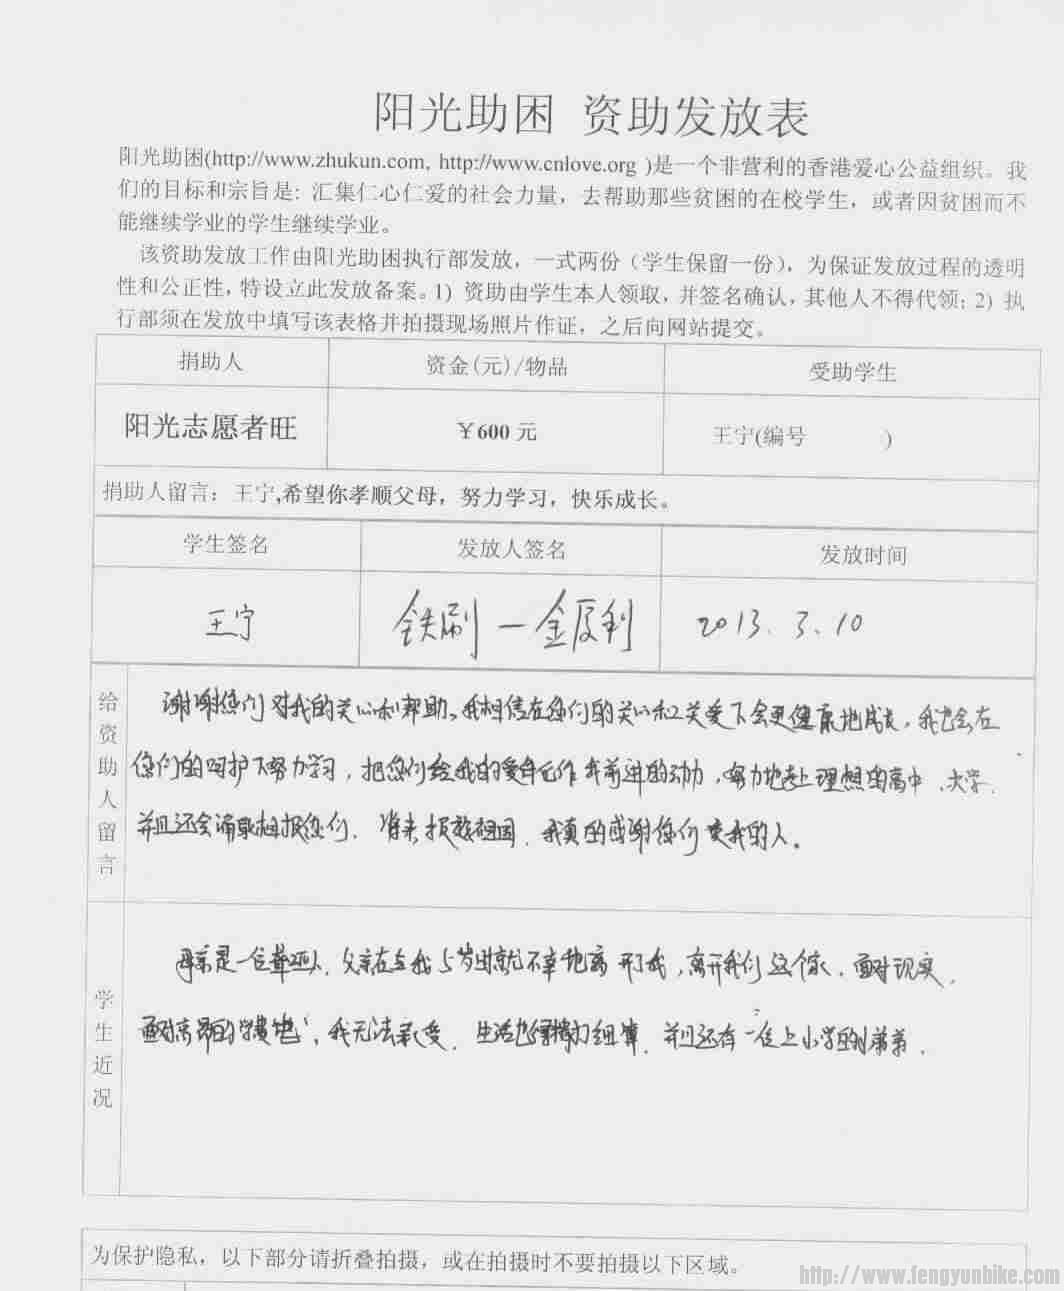 阳光助困 资助发放表
阳光助困(http://www.zhukun.com, http://www.cnlove.org )是一个非营利的香港爱心公益组织。我
们的目标和宗旨是: 汇集仁心仁爱的社会力量，去帮助那些贫困的在校学生，或者因贫困而不
能继续学业的学生继续学业。
该资助发放工作由阳光助困执行部发放，一式两份（学生保留一份），为保证发放过程的透明
性和公正性，特设立此发放备案。1) 资助由学生本人领取，并签名确认，其他人不得代领; 2) 执
行部须在发放中填写该表格并拍摄现场照片作证，之后向网站提交。
捐助人 资金(元)/物品 受助学生
阳光志愿者旺 ￥600 元 王宁(编号 )
捐助人留言：王宁,希望你孝顺父母，努力学习，快乐成长。
学生签名 发放人签名 发放时间
王宁 铁刷一金厚利 2013.3.10
给资助人留言
谢谢您们对我的关心和帮助。我相信在您们的关心和关爱下会更健康地成长，我也会在
您们的呵护下努力学习，把您们给我的爱当作我前进的动力，努力地考上理想的高中、大学.
并且还会 您们. 将来报效祖国. 我真的感谢您们爱我的人。
学生近况
母亲是一位聋哑人. 父亲在我5岁时就不幸地离开了我，离开我们这个家. 面对现实，
面对高昂的学费 ，我无法承受. 生活也 打细算. 并且还有一位上小学的弟弟.
为保护隐私，以下部分请折叠拍摄，或在拍摄时不要拍摄以下区域。
http://www.fengyunbike.com